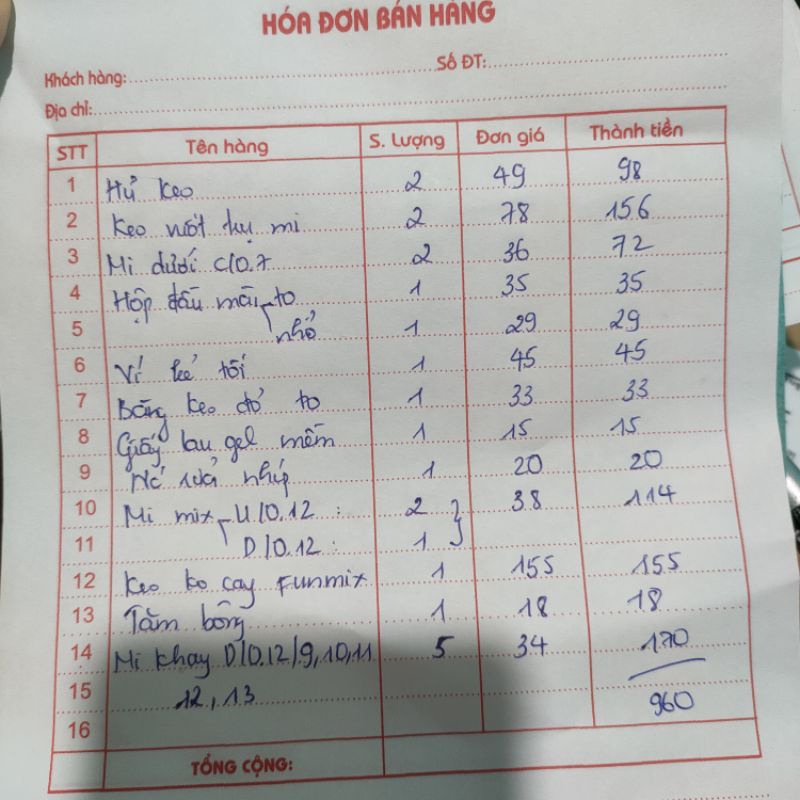 HÓA ĐƠN BÁN HÀNG
Khách hàng: Số ĐT:
Địa chỉ:
STT Tên hàng S. Lượng Đơn giá Thành tiền
1 Hủ keo 2 49 98
2 Keo vuốt tụ mi 2 78 156
3 Mi dưới C/0.7 2 36 72
4 Hộp dầu mài to 1 35 35
5 nhỏ 1 29 29
6 Ví kẻ tối 1 45 45
7 Băng keo đỏ to 1 33 33
8 Giấy lau gel mềm 1 15 15
9 nhíp 1 20 20
10 Mi mix U/0.12 : 2 } 38 114
11 D/0.12 : 1
12 Keo ko cay Funmix 1 155 155
13 Tăm bông 1 18 18
14 Mi khay D/0.12/9,10,11 5 34 170
15 12,13
16 960
TỔNG CỘNG: